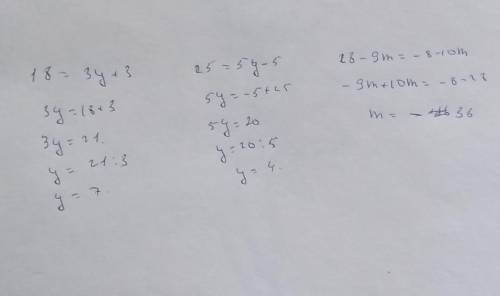 18 = 3y + 3
3y = 18 + 3
3y = 21.
y = 21 : 3
y = 7.
25 = 5y - 5
5y = -5 + 25
5y = 20
y = 20 : 5
y = 4.
28 - 9m = -8 - 10m
-9m + 10m = -8 - 28
m = - 36